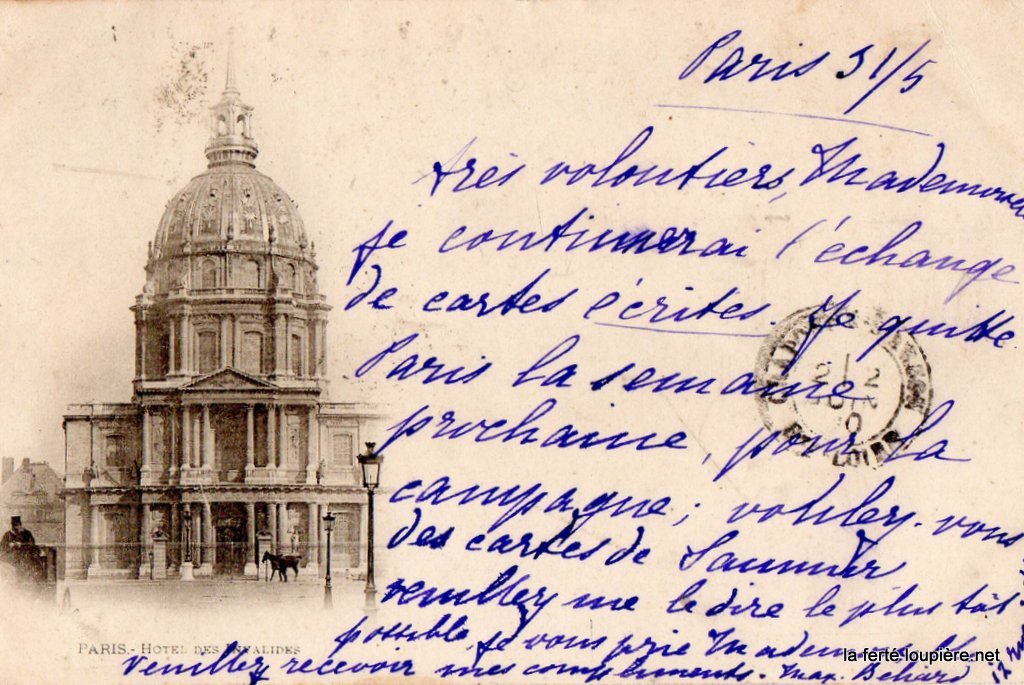 Paris 31/5
très volontiers, Mademoiselle
je continuerai l'échange
de cartes écrites. Je quitte
Paris la semaine
prochaine, pour la
campagne; voulez-vous
des cartes de Saumur
veuillez me le dire le plus tôt
possible, je vous prie Mademoiselle
Veuillez recevoir mes compliments. Max. Behard
PARIS.- HOTEL DES INVALIDES
LOIRE
la-ferté-loupière.net